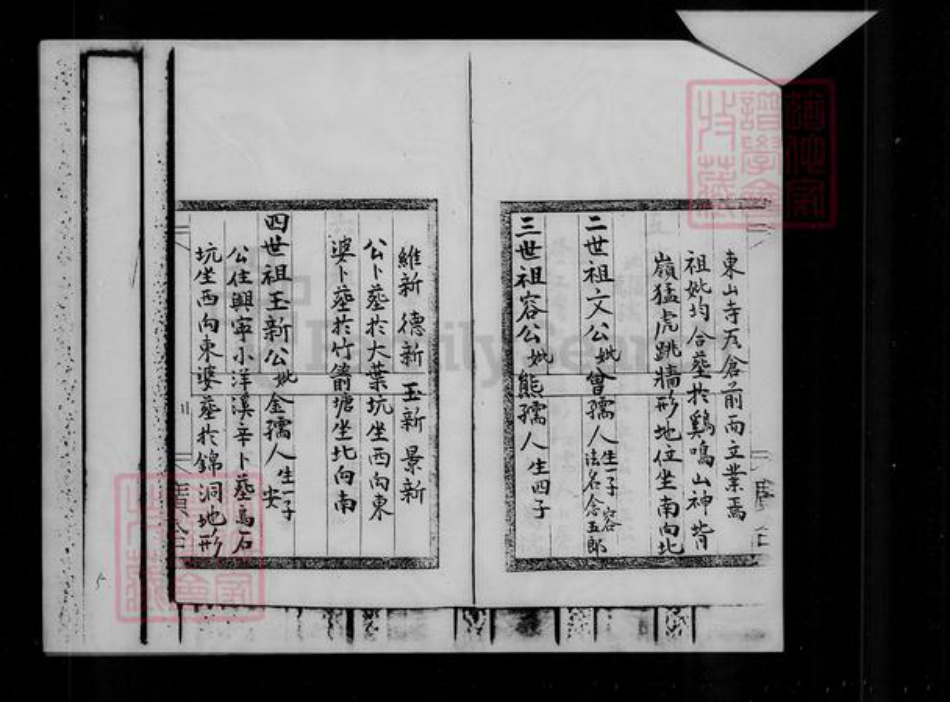 東山寺左倉前而立業焉
祖妣均合墓於鷄鳴山神背
嶺猛虎跳牆形地位坐南向北
二世祖文公妣曾孺人生一子容法名念五郎
三世祖容公妣熊孺人生四子
維新 德新 玉新 景新
公卜墓於大葉坑坐西向東
婆卜墓於竹箭塘坐北向南
四世祖玉新公妣金孺人生一子安
公住興寧小洋溪辛卜墓烏石
坑坐西向東婆墓於錦洞地形
FamilySearch
5